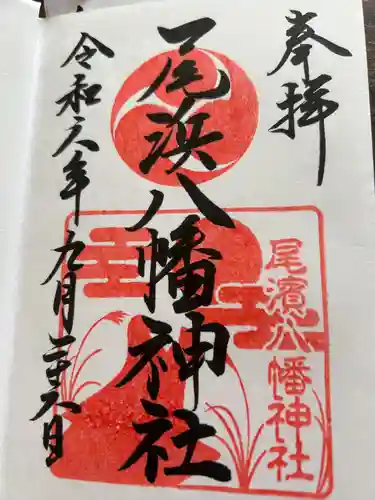 奉拝
尾浜八幡神社
令和六年九月二十八日
尾濱八幡神社